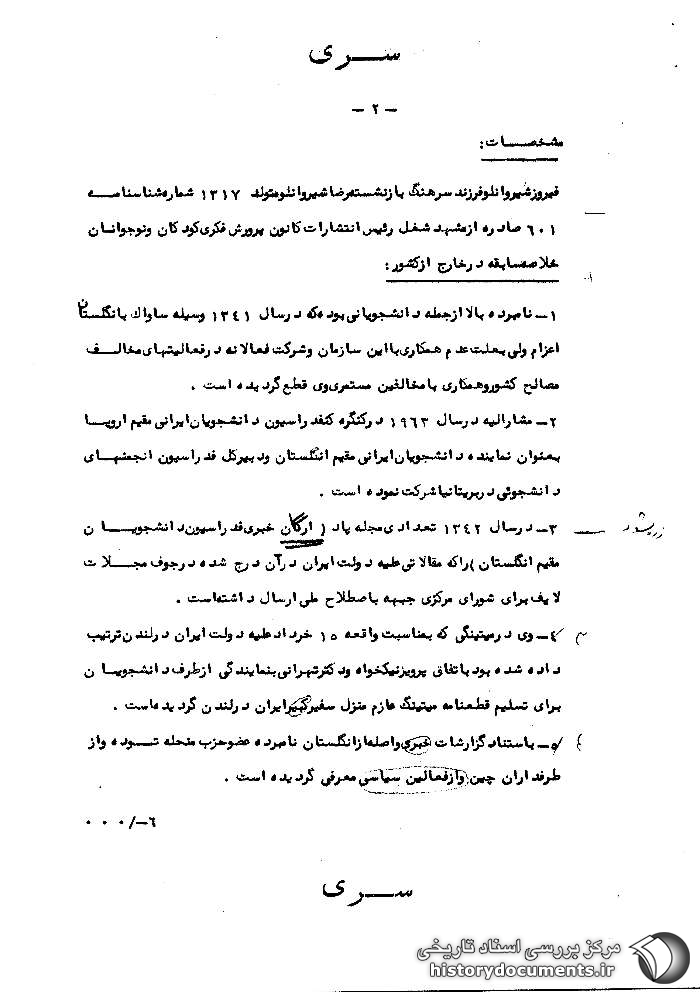 سری
- ۲ -
مشخصات:
فیروز شیروانلو فرزند سرهنگ بازنشسته رضا شیروانلو متولد ۱۳۱۷ شماره شناسنامه
۶۰۱ صادره از مشهد شغل رئیس انتشارات کانون پرورش فکری کودکان ونوجوانان
خلاصه سابقه در خارج از کشور:
۱- نامبرده بالا از جمله دانشجویانی بوده که در سال ۱۳۴۱ وسیله ساواک بانگلستان
اعزام ولی بعلت عدم همکاری با این سازمان وشرکت فعالانه در فعالیتهای مخالف
مصالح کشور وهمکاری با مخالفین مستمری وی قطع گردیده است .
۲- مشارالیه در سال ۱۹۶۳ در کنگره کنفدراسیون دانشجویان ایرانی مقیم اروپا
بعنوان نماینده دانشجویان ایرانی مقیم انگلستان ودبیرکل فدراسیون انجمنهای
دانشجوئی در بریتانیا شرکت نموده است .
۳- در سال ۱۳۴۲ تعدادی مجله پاد ( ارگان خبری فدراسیون دانشجویان
مقیم انگلستان ) را که مقالاتی علیه دولت ایران در آن درج شده در جوف مجلات
لایف برای شورای مرکزی جبهه باصطلاح ملی ارسال داشته است .
۴- وی در میتینگی که بمناسبت واقعه ۱۵ خرداد علیه دولت ایران در لندن ترتیب
داده شده بود باتفاق پرویز نیکخواه ودکتر تهرانی بنمایندگی از طرف دانشجویان
برای تسلیم قطعنامه میتینگ عازم منزل سفیر کبیر ایران در لندن گردیده است .
۵- باستناد گزارشات خبری واصله از انگلستان نامبرده عضو حزب منحله توده واز
طرفداران چین واز فعالین سیاسی معرفی گردیده است .
۶-/۰۰۰
سری
مرکز بررسی اسناد تاریخی
historydocuments.ir